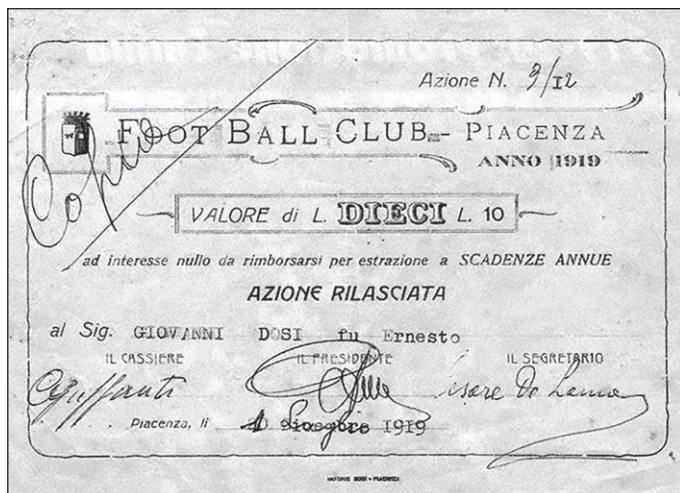 Azione N. 9/12
FOOT BALL CLUB - PIACENZA
ANNO 1919
Copia
VALORE di L. DIECI L. 10
ad interesse nullo da rimborsarsi per estrazione a SCADENZE ANNUE
AZIONE RILASCIATA
al Sig. GIOVANNI DOSI fu Ernesto
IL CASSIERE IL PRESIDENTE IL SEGRETARIO
Cesare
Piacenza, li 1919